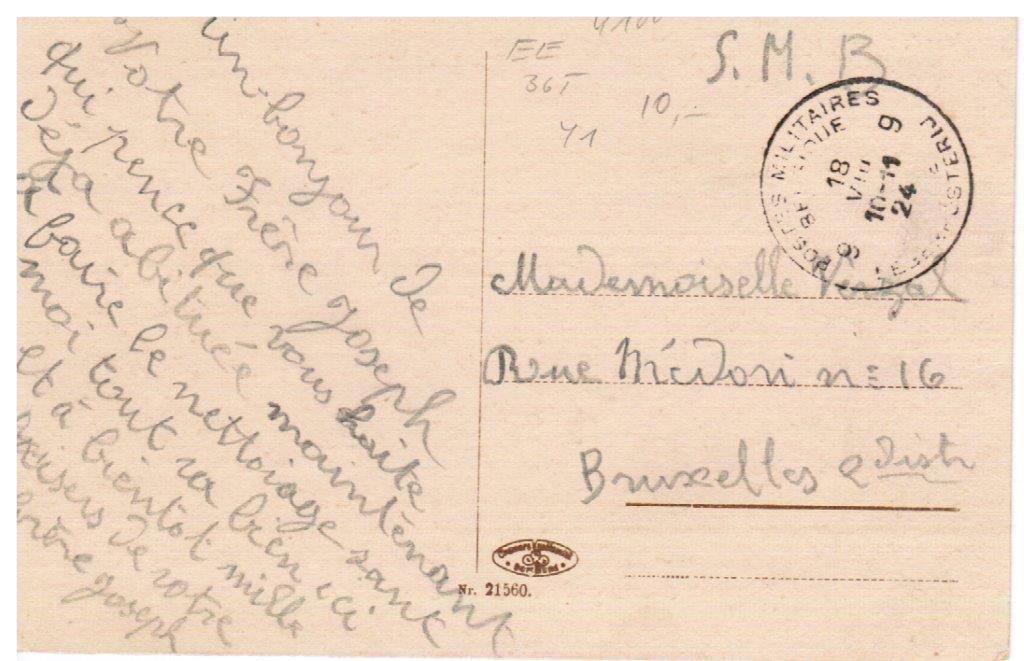 un bonjour de
Votre Frère Joseph
qui pence que vous haite
Déja abituée maintenant
a faire le nettoiage sans
moi tout va bien ici
et à bientot mille
Baisers de votre
frère Joseph
4100
EE
36T
10,-
41
S. M. B
POSTES MILITAIRES
BELGIQUE
9
18
VIII
10-11
24
9
LEGERPOSTERIJ
Mademoiselle
Rue n= 16
Bruxelles 2 distr
Nr. 21560.